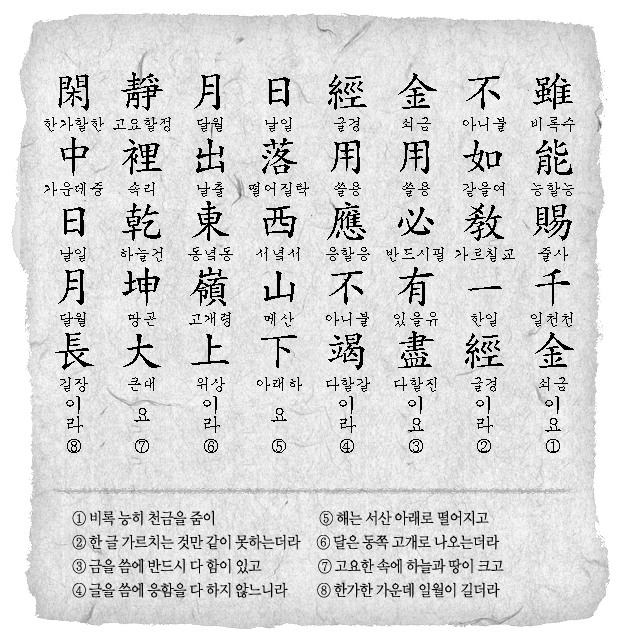 雖 비록수 能 능할능 賜 줄사 千 일천천 金 쇠금 이요 ①
不 아니불 如 같을여 敎 가르칠교 一 한일 經 글경 이라 ②
金 쇠금 用 쓸용 必 반드시필 有 있을유 盡 다할진 이요 ③
經 글경 用 쓸용 應 응할응 不 아니불 竭 다할갈 이라 ④
日 날일 落 떨어질락 西 서녘서 山 메산 下 아래하 요 ⑤
月 달월 出 날출 東 동녘동 嶺 고개령 上 위상 이라 ⑥
靜 고요할정 裡 속리 乾 하늘건 坤 땅곤 大 큰대 요 ⑦
閑 한가할한 中 가운데중 日 날일 月 달월 長 길장 이라 ⑧
① 비록 능히 천금을 줌이
② 한 글 가르치는 것만 같이 못하는더라
③ 금을 씀에 반드시 다 함이 있고
④ 글을 씀에 응함을 다 하지 않느니라
⑤ 해는 서산 아래로 떨어지고
⑥ 달은 동쪽 고개로 나오는더라
⑦ 고요한 속에 하늘과 땅이 크고
⑧ 한가한 가운데 일월이 길더라